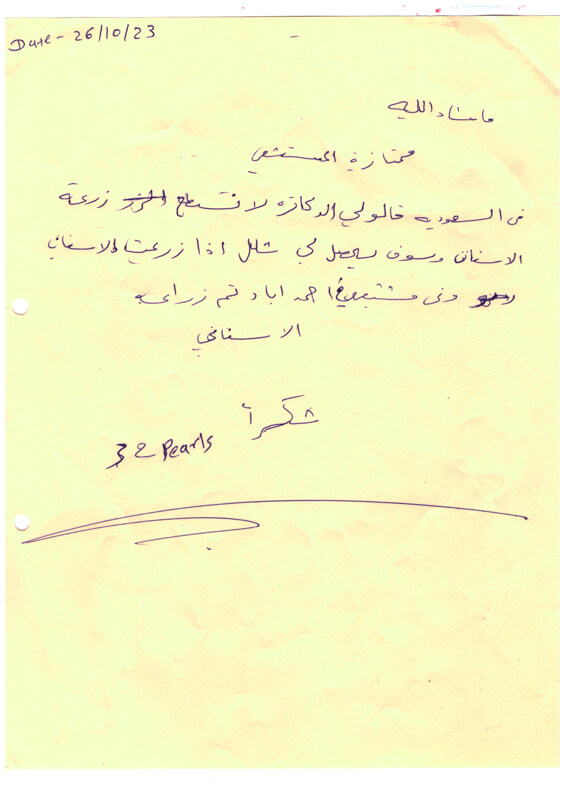 Date - 26/10/23
ماشاء الله
ممتازة المستشفى
في السعودية قالولي الدكاتره لا نستطيع زرعة
الاسنان وسوف يحصل لي شلل اذا زرعت الاسنان
وفي مستشفى احمد اباد تم زراعة
الاسناني
شكراً
32 Pearls